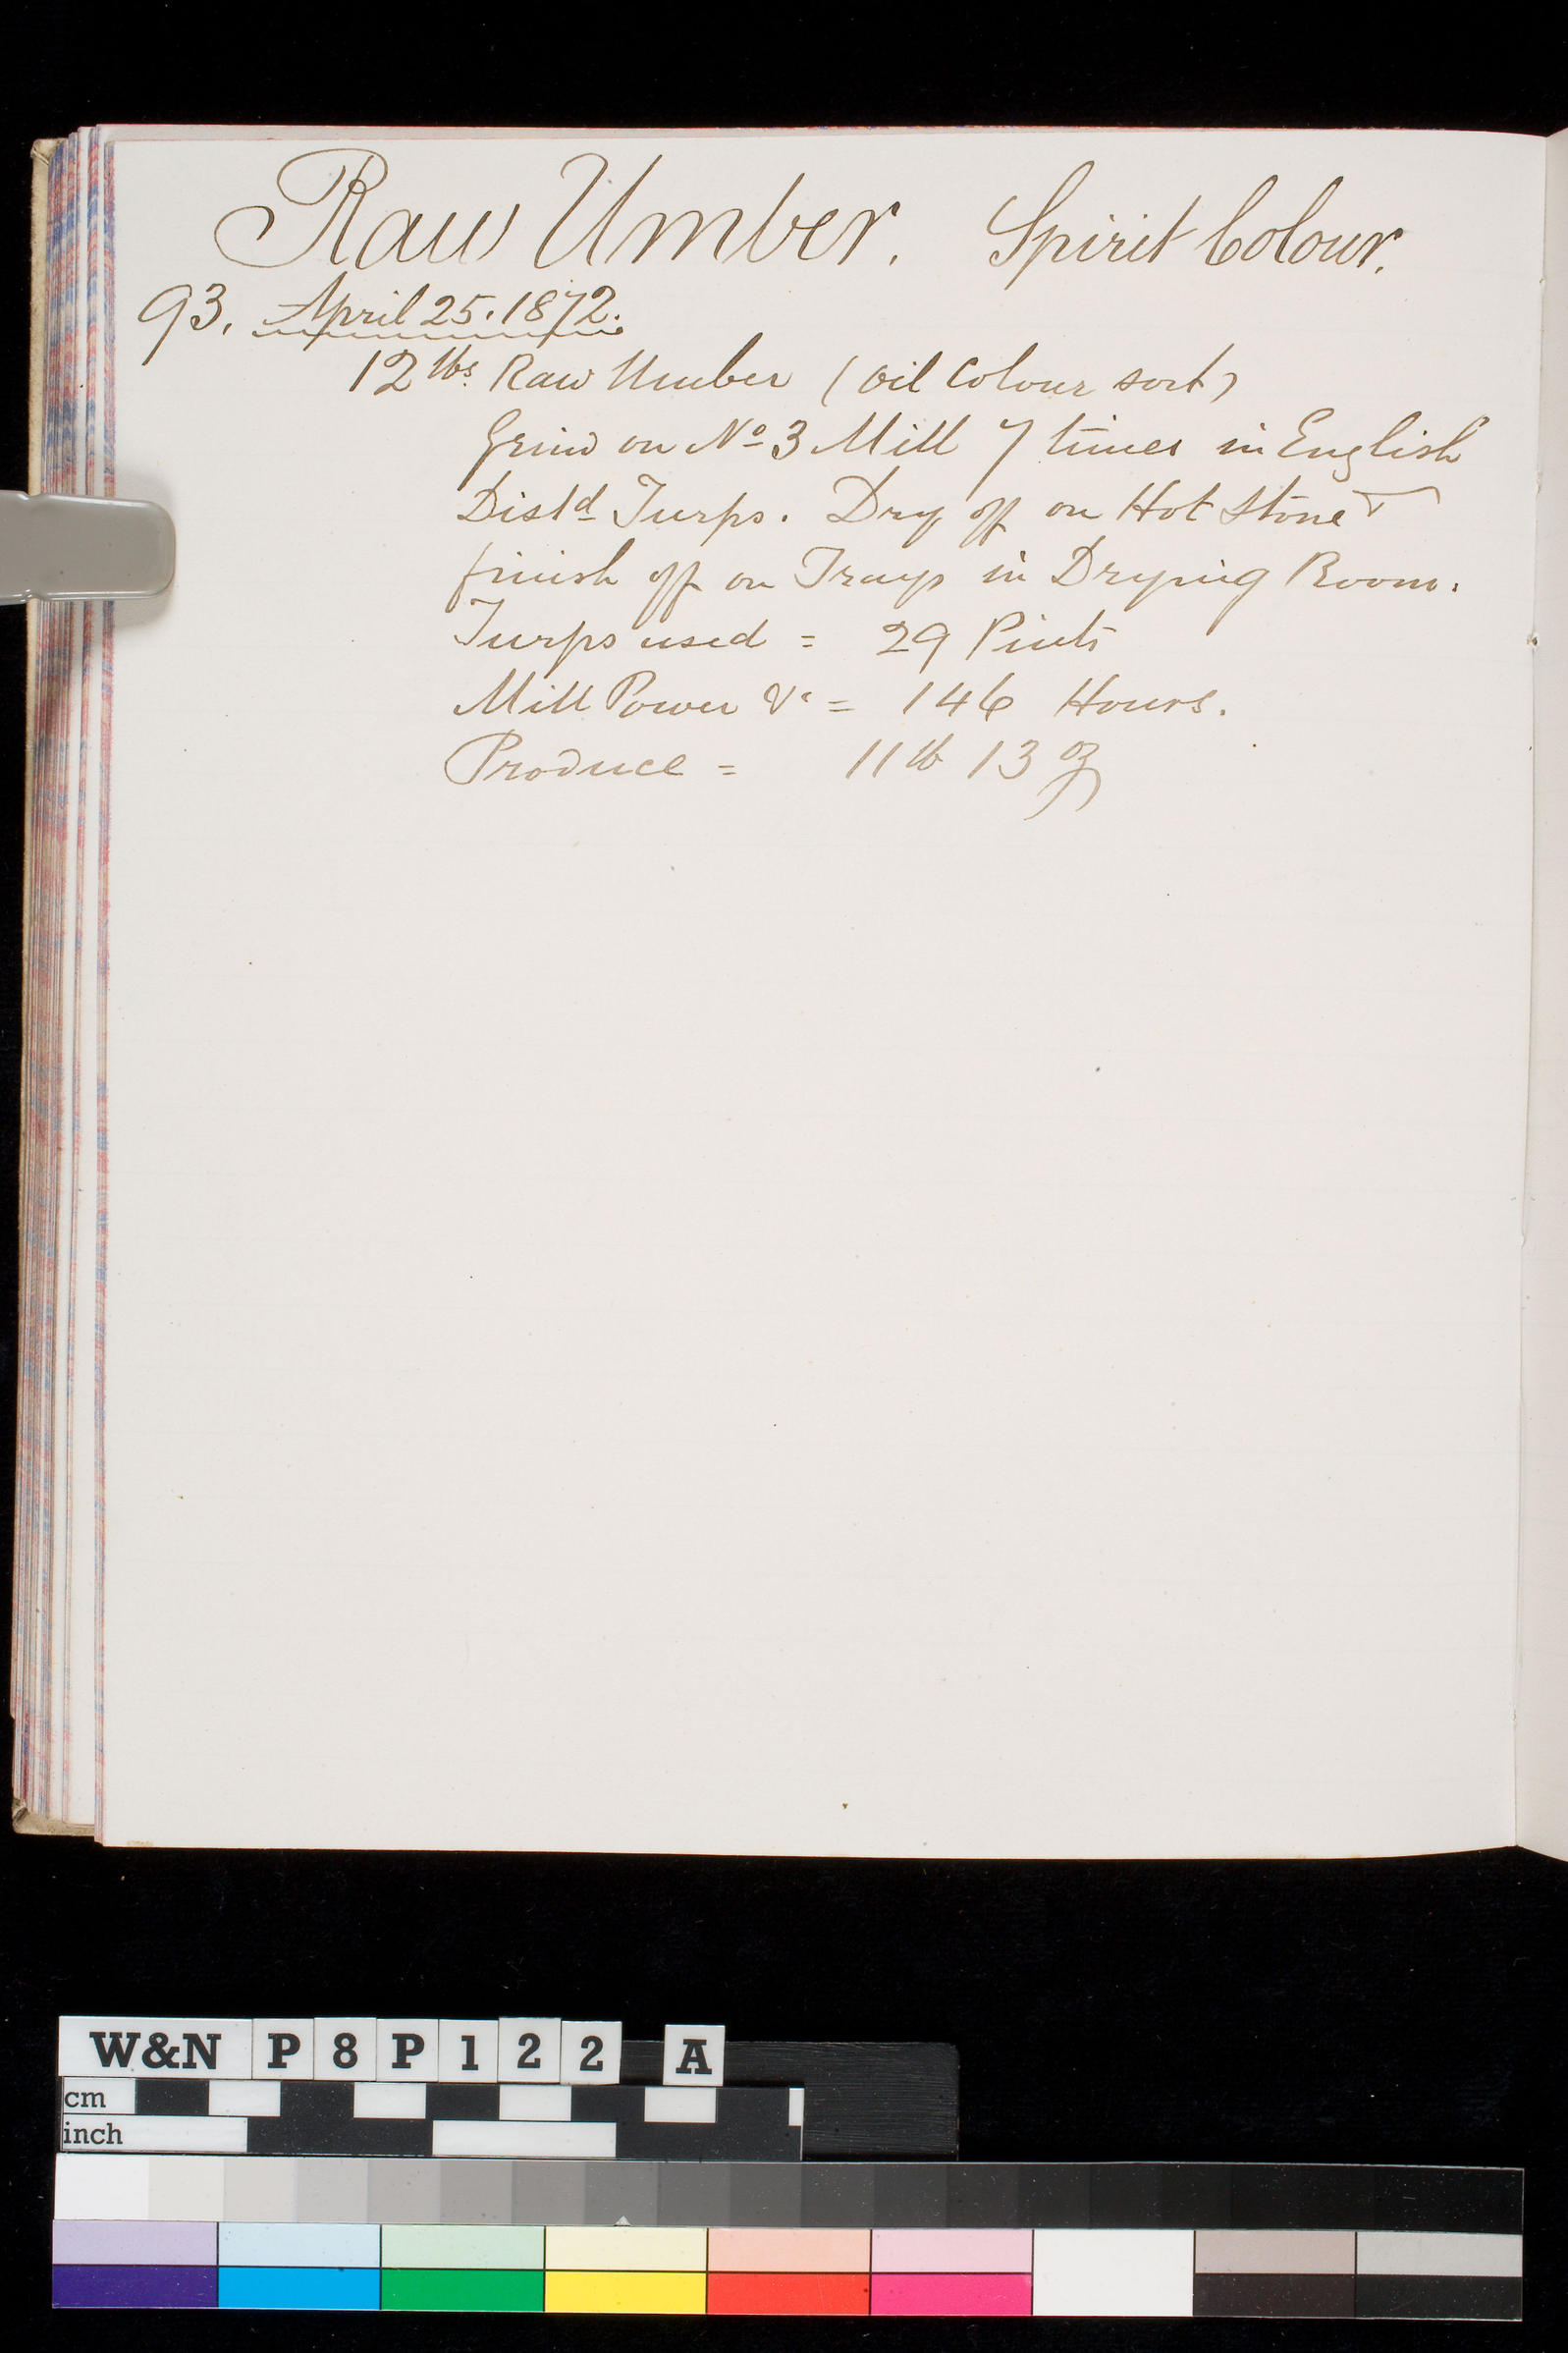 Raw Umber. Spirit Colour.
93. April 25. 1872.
12 lbs. Raw Umber (Oil Colour sort)
Grind on No 3 Mill 7 times in English
Distd Turps. Dry off on Hot Stone &
finish off on Trays in Drying Room.
Turps used = 29 Pints
Mill Power &c = 146 Hours.
Produce = 11 lb 13 oz
W&N P8P122 A
cm
inch